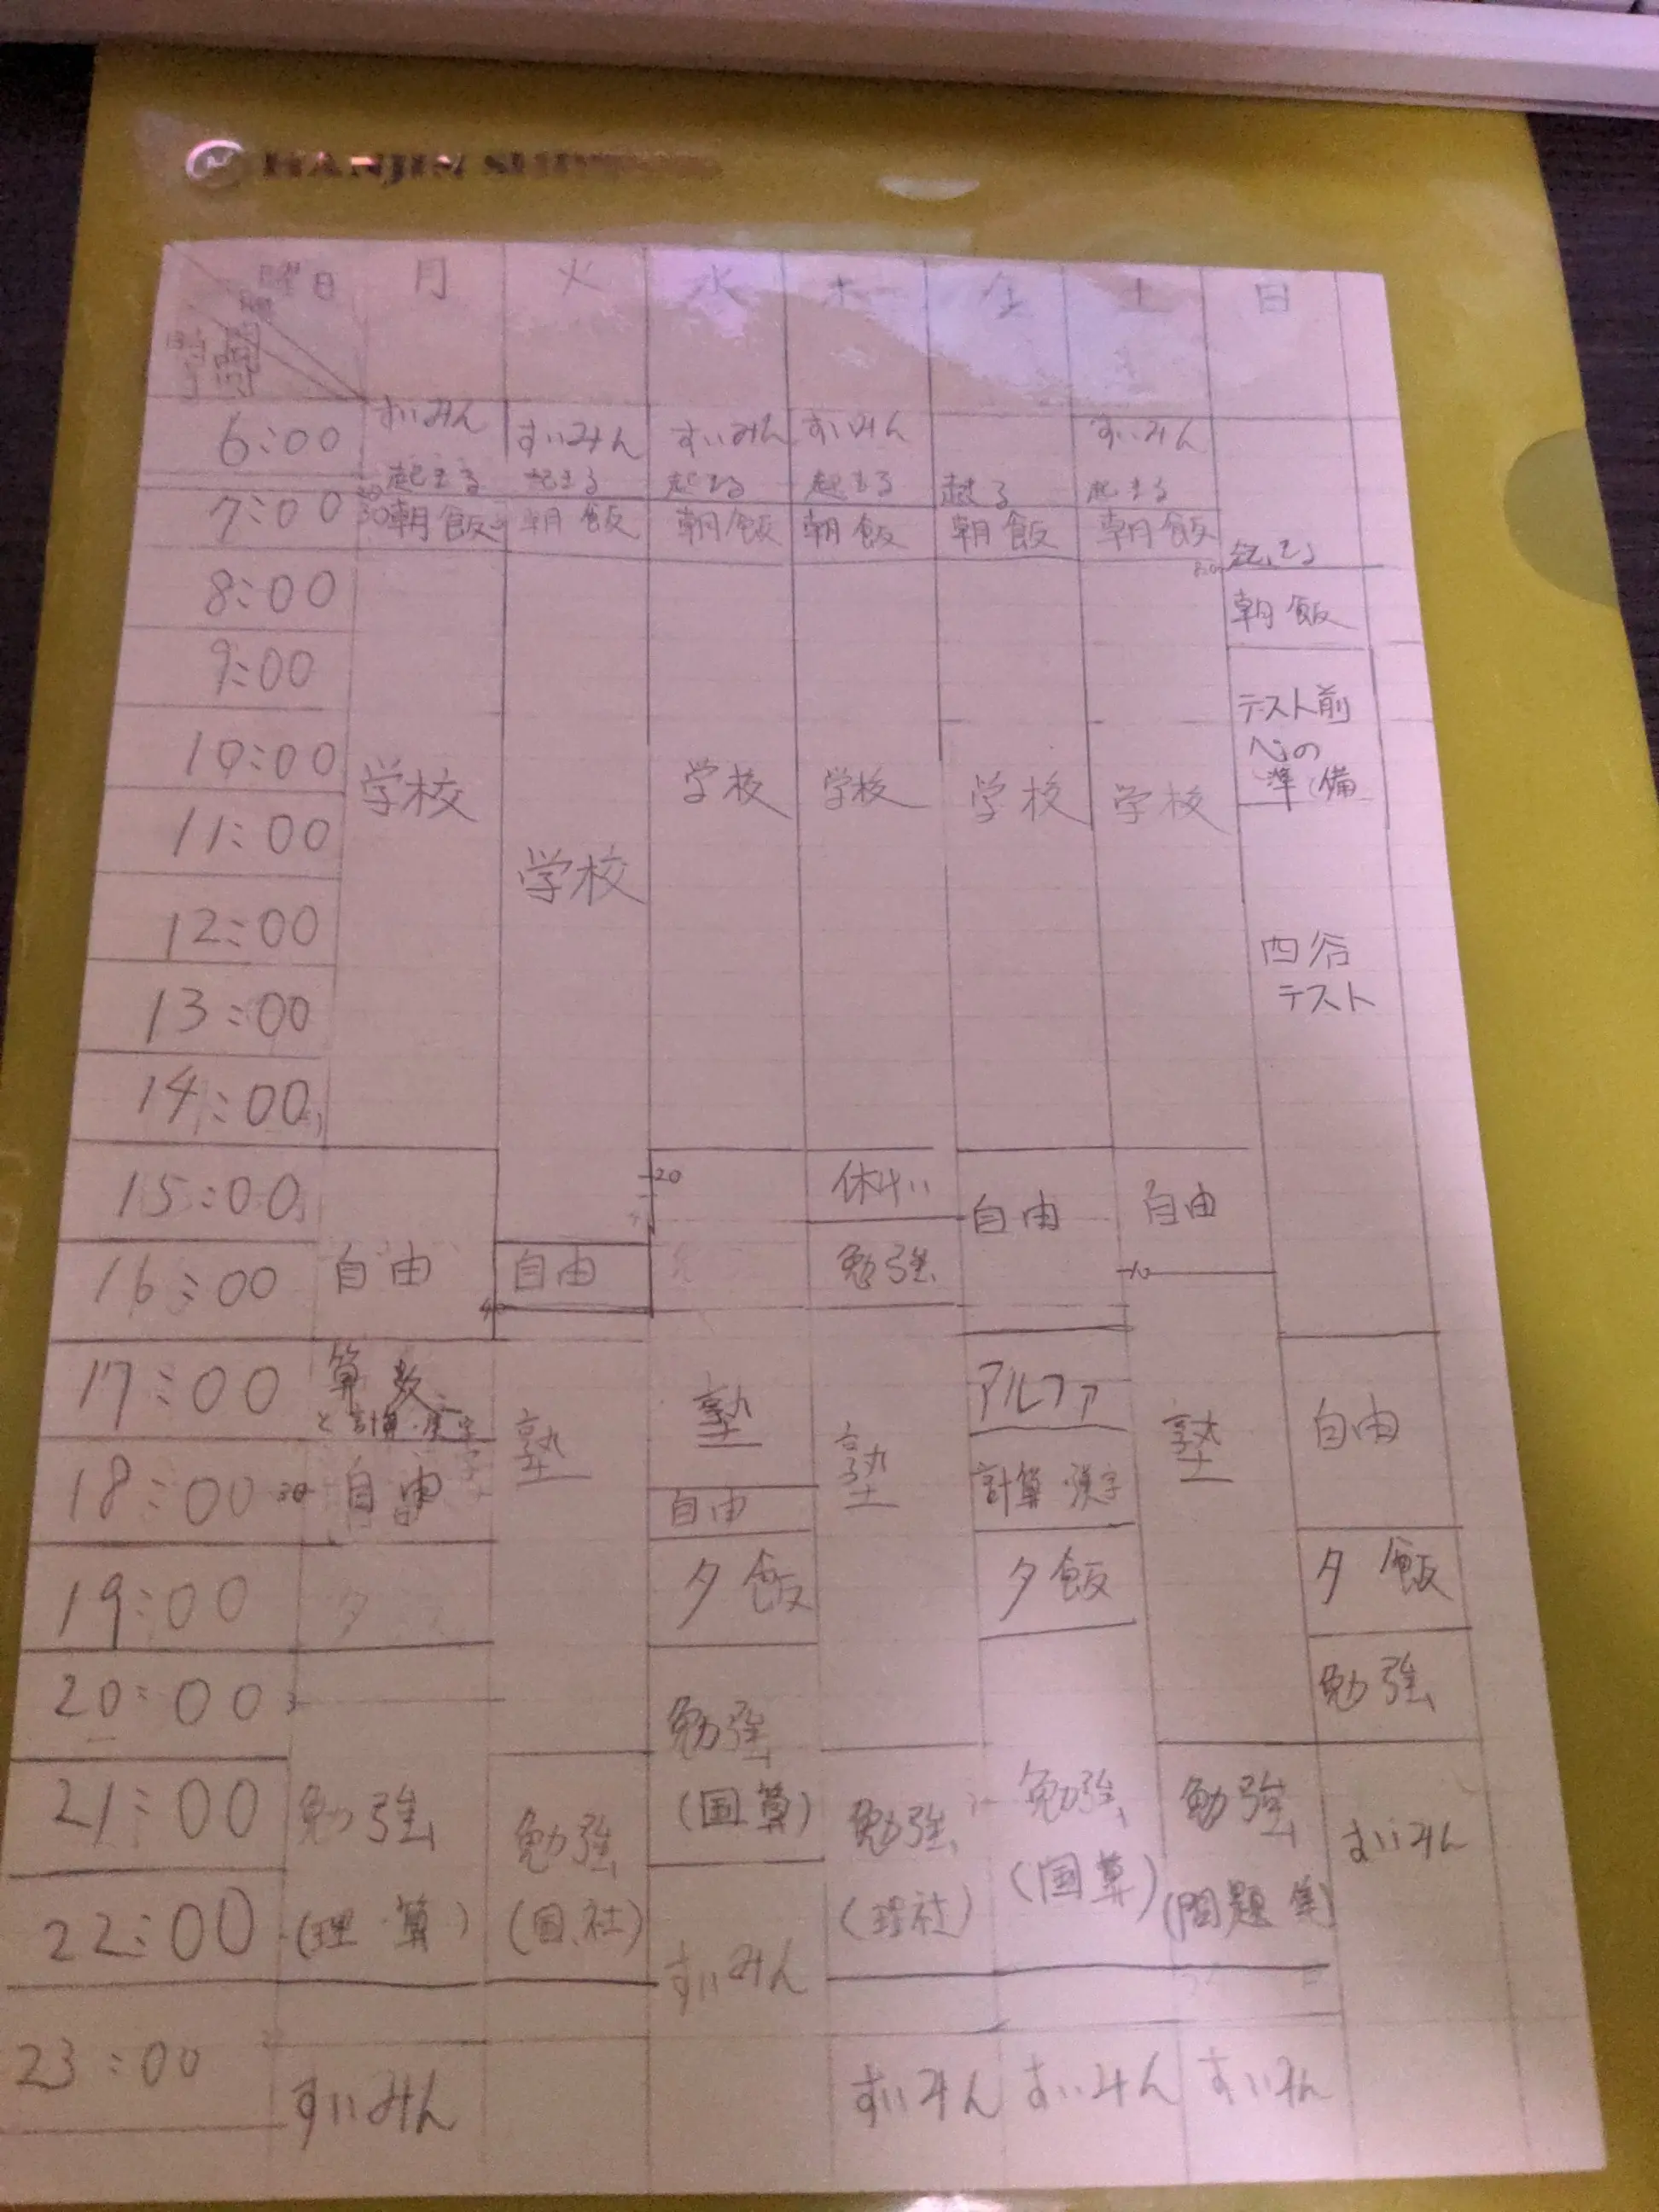 HANJIN
曜日 月 火 水 木 金 土 日
時間
6:00 すいみん すいみん すいみん すいみん すいみん
起きる 起きる 起きる 起きる 起きる 起きる
7:00 30 朝飯 朝飯 朝飯 朝飯 朝飯 朝飯
起きる
8:00 朝飯
9:00
テスト前
心の
準備
10:00 学校 学校 学校 学校 学校
11:00 学校
12:00 四谷
テスト
13:00
14:00
15:00 20 休けい 自由 自由
16:00 自由 自由 勉強 10
17:00 算数 塾 アルファ 自由
と計算・漢字 塾 塾 塾
18:00 30 自由 自由 計算・漢字
19:00 夕 夕飯 夕飯 夕飯
20:00 勉強 勉強
(国算)
21:00 勉強 勉強 勉強 勉強 勉強 すいみん
22:00 (理・算) (国、社) (理社) (国算) (問題集)
すいみん
23:00 すいみん すいみん すいみん すいみん